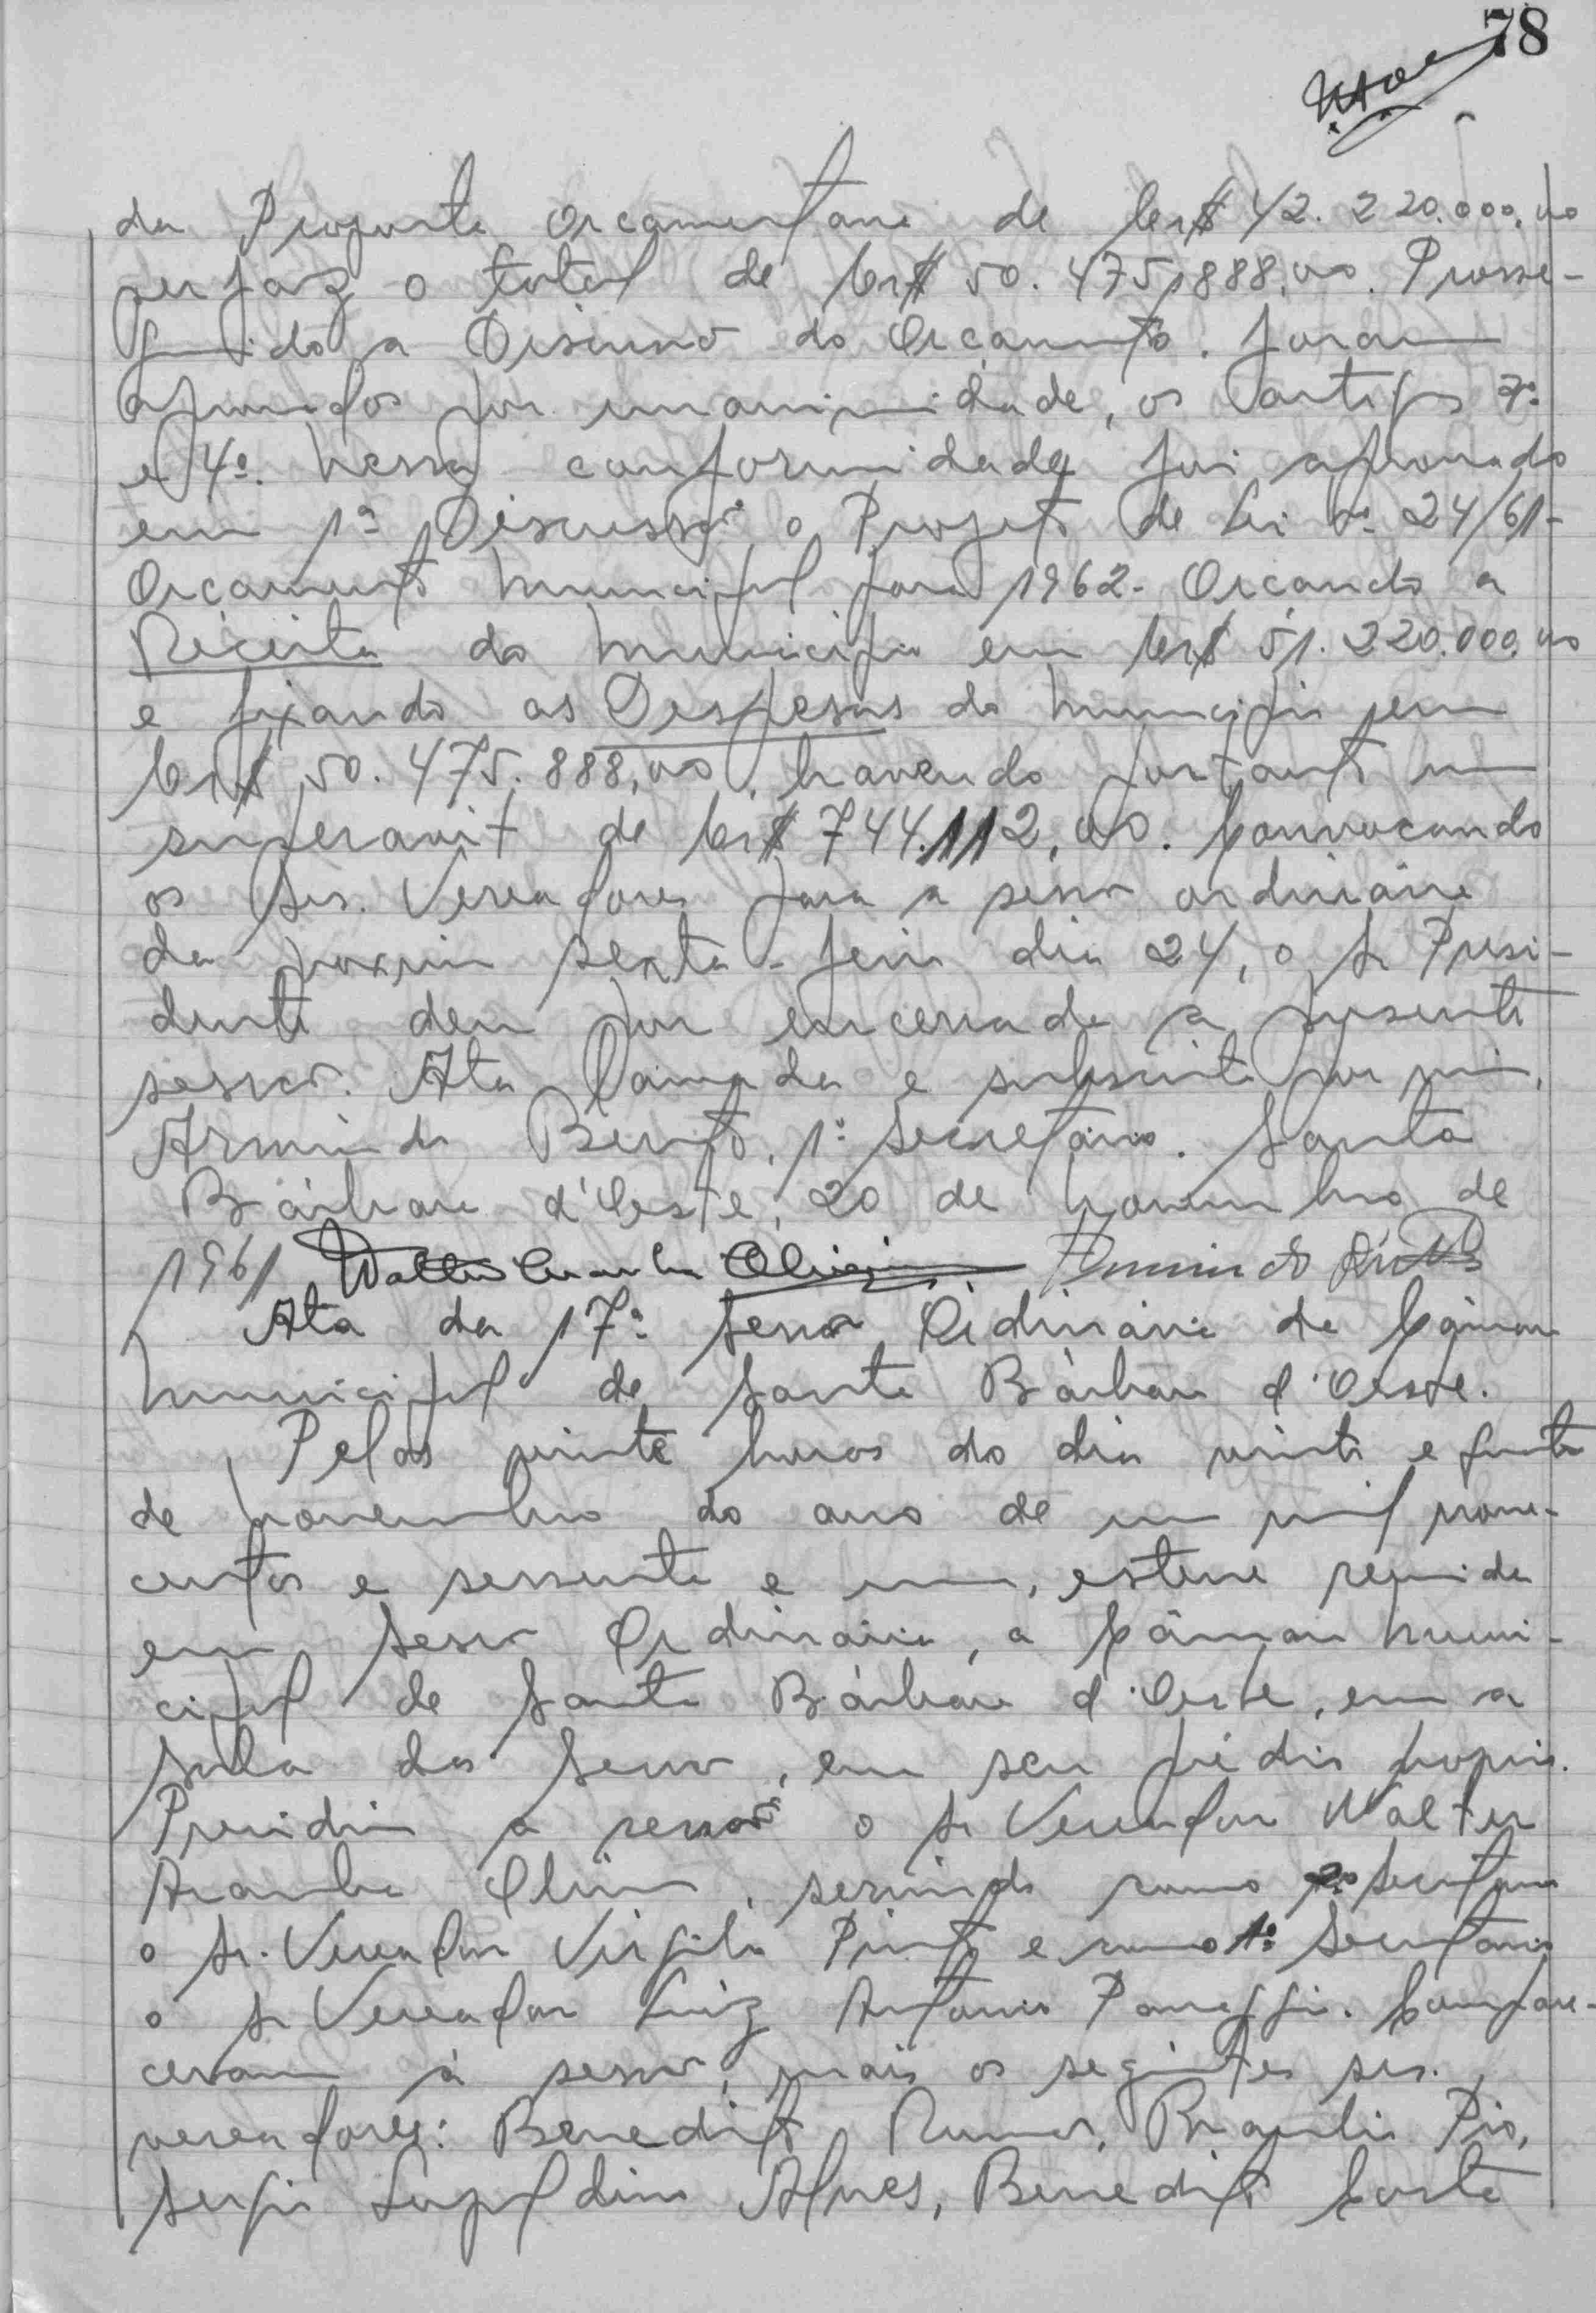 78
da Proposta Orçamentaria de Cr$ 42.220.000,00
perfaz o total de Cr$ 50.475,888,00. Prosse-
guindo a Discussão do Orçamento. foram
aprovados por unanimidade, os artigos 3º
e 4º. Nessa conformidade foi aprovado
em 1ª Discussão o Projeto de Lei nº 24/61-
Orçamento Municipal para 1962- Orçando a
Receita do Município em Cr$ 51.220.000,00
e fixando as Despesas do Município em
Cr$ 50.475.888,00, havendo portanto um
superavit de Cr$ 744.112,00. Convocando
os Srs. Vereadores para a sessão ordinária
da proxima sexta-feira dia 24, o Sr Presi-
dente deu por encerrada a presente
sessão. Ata lavrada e subscrita por mim,
Armindo Bento, 1º Secretário. Santa
Bárbara d'Oeste, 20 de Novembro de
1961
Ata da 17ª Sessão Ordinária da Câmara
Municipal de Santa Bárbara d'Oeste.
Pelas vinte horas do dia vinte e quatro
de Novembro do ano de um mil nove-
centos e sessenta e um, esteve reunida
em Sessão Ordinária, a Câmara Muni-
cipal de Santa Bárbara d'Oeste, em a
sala das Sessão, em seu prédio proprio.
Presidiu a sessão o Sr Vereador Walter
servindo como 2º Secretario
o Sr. Vereador Virgilio Pinto e como 1º Secretario
o Sr Vereador Luiz Antonio Panaggi. Compare-
ceram à sessão, mais os seguintes srs.
vereadores: Benedito Braulio Pio,
Sergio Alves, Benedito Costa